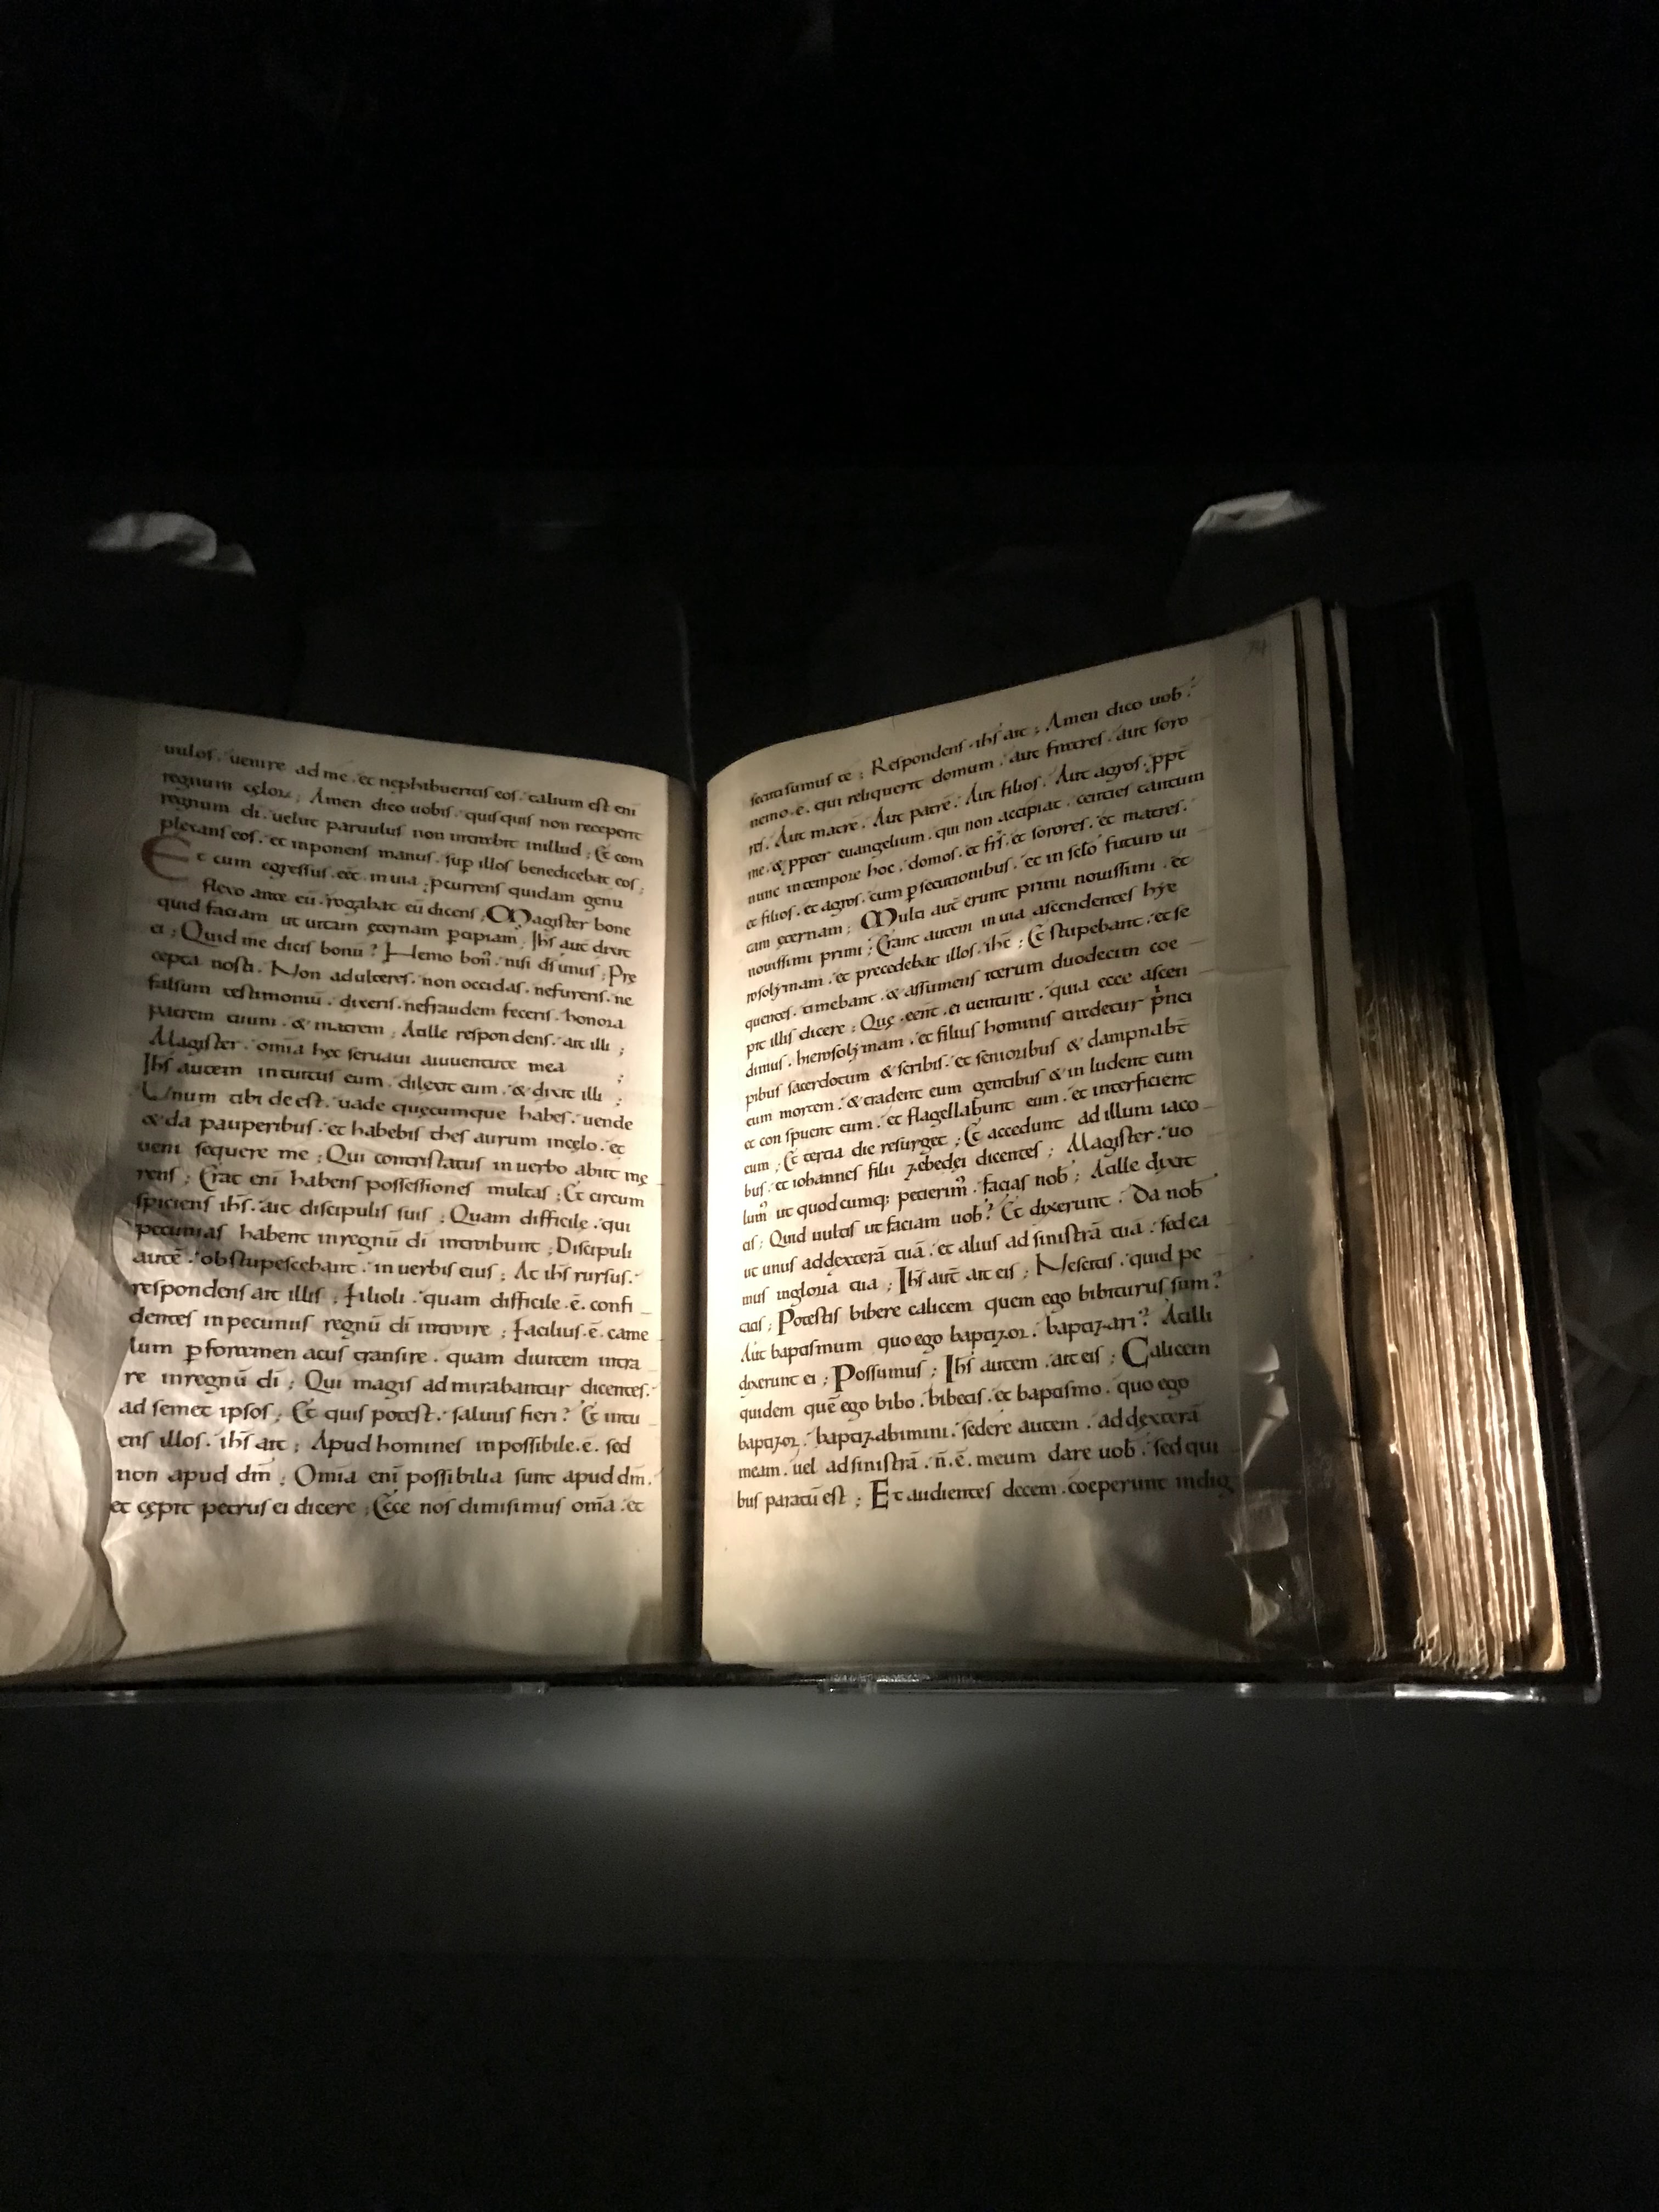 uulos. uenire ad me. et ne phibueritis eos. talium est eni
regnum cęloꝝ; Amen dico uobis. quisquis non receperit
regnum di. uelut paruulus non intrabit in illud; Et com
plexans eos. et inponens manus. sup illos benedicebat eos;
Et cum egressus. eēt. in uia; pcurrens quidam genu
flexo ante eū. rogabat eū dicens; Magister bone
quid faciam ut uitam ęternam ꝑcipiam; Ihs aut dixit
ei; Quid me dicis bonū? Nemo bon̄. nisi ds̄ unus; Prę
cepta nosti. Non adulteres. non occidas. ne fureris. ne
falsum testimoniū. dixeris. ne fraudem feceris. honora
patrem tuum. & matrem; At ille respondens. ait illi;
Magister. omīa hęc seruaui a iuuentute mea;
Ihs autem intuitus eum. dilexit eum. & dixit illi;
Unum tibi de est. uade quęcumque habes. uende
& da pauperibus. et habebis thesaurum in cęlo. et
ueni sequere me; Qui contristatus in uerbo abiit mę
rens; Erat enī habens possessiones multas; Et circum
spiciens ihs. ait discipulis suis; Quam difficile. qui
pecunias habent in regnū di introibunt; Discipuli
autē. obstupescebant. in uerbis eius; At ihs rursus.
respondens ait illis; Filioli. quam difficile. ē. confi
dentes in pecuniis regnū di introire; Facilius. ē. came
lum ꝑ foramen acus transire. quam diuitem intra
re in regnū di; Qui magis admirabantur dicentes.
ad semet ipsos; Et quis potest. saluus fieri? Et intu
ens illos. ihs ait; Apud homines inpossibile. ē. sed
non apud dm̄; Omīa enī possibilia sunt apud dm̄.
et cępit petrus ei dicere; Ecce nos dimisimus omīa. et
secuti sumus te; Respondens. ihs ait; Amen dico uob.
nemo. ē. qui reliquerit domum. aut fratres. aut soro
res. Aut matrē. Aut patrē. Aut filios. Aut agros. ppt
me. & ppter euangelium. qui non accipiat. centies tantum
nunc in tempore hoc. domos. et frs̄. et sorores. et matres.
et filios. et agros. cum ꝑsecutionibus. et in sclo futuro ui
tam ęternam; Multi aut erunt primi nouissimi. et
nouissimi primi; Erant autem in uia ascendentes hye
rosolymam. et precedebat illos. ihc; Et stupebant. et se
quentes. timebant. & assumens iterum duodecim coe
pit illis dicere; Quę. eēnt. ei uentura. quia ecce ascen
dimus. hierosolymam. et filius hominis tradetur pnci
pibus sacerdotum & scribis. et senioribus & dampnabt
eum mortem. & tradent eum gentibus & in ludent eum
et con spuent eum. et flagellabunt eum. et interficient
eum; Et tertia die resurget; Et accedunt ad illum iaco
bus. et iohannes filii zebedei dicentes; Magister. uo
lum̄ ut quodcumq; petierim̄. facias nob; At ille dixit
eis; Quid uultis ut faciam uob? Et dixerunt. Da nob
ut unus ad dexterā tuā. et alius ad sinistrā tuā. sedea
mus in gloria tua; Ihs aut ait eis; Nescitis. quid pe
tatis; Potestis bibere calicem quem ego bibiturus sum?
Aut baptismum quo ego baptizor. baptizari? At illi
dixerunt ei; Possumus; Ihs autem. ait eis; Calicem
quidem quē ego bibo. bibetis. et baptismo. quo ego
baptizor. baptizabimini. sedere autem. ad dexterā
meam. uel ad sinistrā. n̄. ē. meum dare uob. sed qui
bus paratū est; Et audientes decem. coeperunt indig